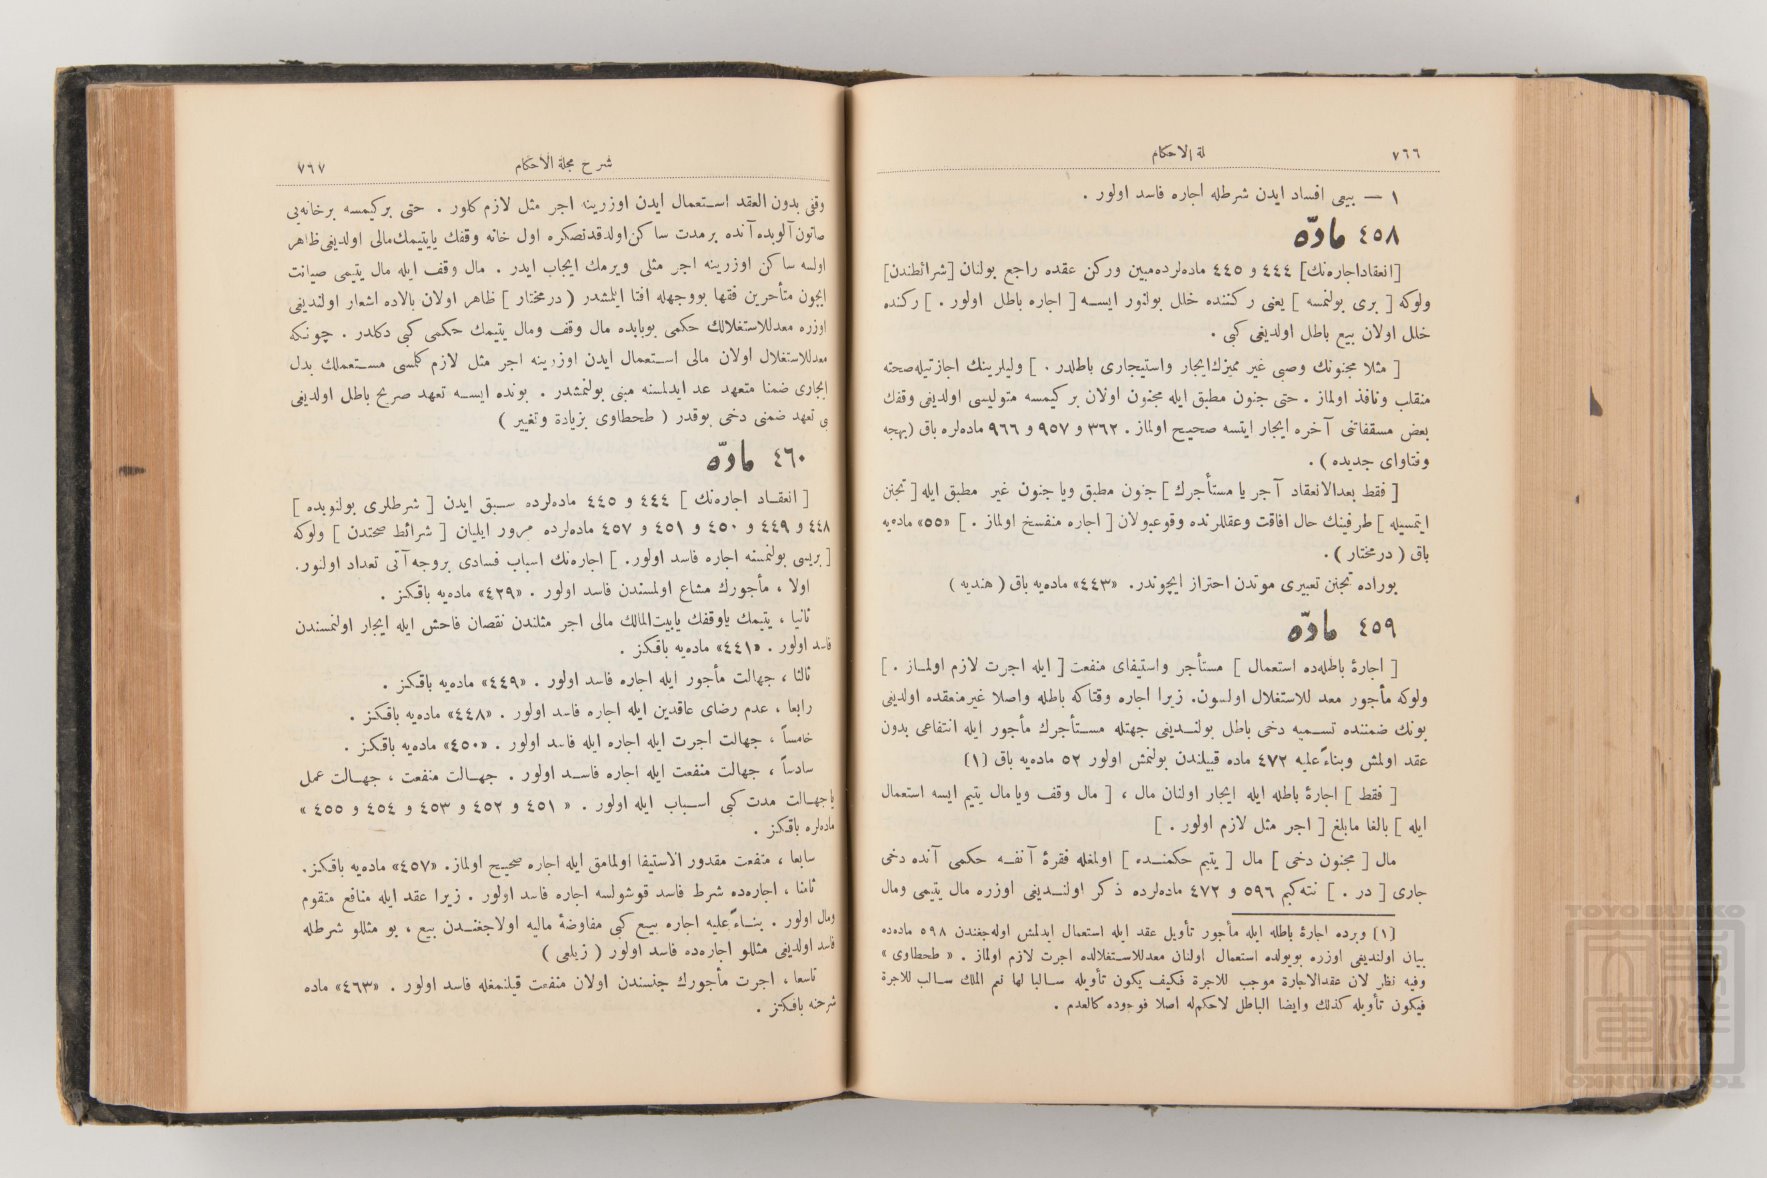 ٧٦٦
لة الاحكام
١ — بيعى افساد ايدن شرطله اجاره فاسد اولور .
٤٥٨ مادّه
[انعقاد اجاره‌نك] ٤٤٤ و ٤٤٥ ماده‌لرده مبين وركن عقده راجع بولنان [شرائطندن]
ولوكه [ برى بولنمسه ] يعنى ركننده خلل بولنور ايسه [ اجاره باطل اولور . ] ركنده
خلل اولان بيع باطل اولديغى كبى .
[ مثلا مجنونك وصبى غير مميزك ايجار واستيجارى باطلدر . ] وليلرينك اجازتيله صحته
منقلب ونافذ اولماز . حتى جنون مطبق ايله مجنون اولان بر كيمسه متوليسى اولديغى وقفك
بعض مسقفاتنى آخره ايجار ايتسه صحيح اولماز . ٣٦٢ و ٩٥٧ و ٩٦٦ ماده‌لره باق (بهجه
وفتاواى جديده ) .
[ فقط بعدالانعقاد آجر يا مستأجرك ] جنون مطبق ويا جنون غير مطبق ايله [ تجنن
ايتمسيله ] طرفينك حال افاقت وعقللرنده وقوعبولان [ اجاره منفسخ اولماز . ] «٥٥» ماده‌يه
باق ( درمختار ) .
بوراده تجنن تعبيرى موتدن احتراز ايچوندر. «٤٤٣» ماده‌يه باق ( هنديه )
٤٥٩ مادّه
[ اجارهٔ باطله‌ده استعمال ] مستأجر واستيفاى منفعت [ ايله اجرت لازم اولماز . ]
ولوكه مأجور معد للاستغلال اولسون. زيرا اجاره وقتاكه باطله واصلا غير منعقده اولديغى
بونك ضمننده تسميه دخى باطل بولنديغى جهتله مستأجرك مأجور ايله انتفاعى بدون
عقد اولمش وبناءً عليه ٤٧٢ ماده قبيلندن بولنمش اولور ٥٢ ماده‌يه باق (١)
[ فقط ] اجارهٔ باطله ايله ايجار اولنان مال ، [ مال وقف ويا مال يتيم ايسه استعمال
ايله ] بالغا مابلغ [ اجر مثل لازم اولور . ]
مال [ مجنون دخى ] مال [ يتيم حكمنده ] اولمغله فقرهٔ آنفه حكمى آنده دخى
جارى [ در . ] نته‌كيم ٥٩٦ و ٤٧٢ ماده‌لرده ذكر اولنديغى اوزره مال يتيمى ومال
(١) وبرده اجارهٔ باطله ايله مأجور تأويل عقد ايله استعمال ايدلمش اوله‌جغندن ٥٩٨ ماده‌ده
بيان اولنديغى اوزره بويولده استعمال اولنان معدللاستغلالده اجرت لازم اولماز . « طحطاوى »
وفيه نظر لان عقدالاجارة موجب للاجرة فكيف يكون تأويله سالبا لها نعم الملك سالب للاجرة
فيكون تأويله كذلك وايضا الباطل لاحكم‌له اصلا فوجوده كالعدم .
شرح مجلة الاحكام
٧٦٧
وقفى بدون العقد استعمال ايدن اوزرينه اجر مثل لازم كلور . حتى بر كيمسه بر خانه‌يى
صاتون آلوبده آنده بر مدت ساكن اولدقدنصكره اول خانه وقفك يا يتيمك مالى اولديغى ظاهر
اولسه ساكن اوزرينه اجر مثلى ويرمك ايجاب ايدر . مال وقف ايله مال يتيمى صيانت
ايچون متأخرين فقها بووجهله افتا ايلمشدر ( درمختار ) ظاهر اولان بالاده اشعار اولنديغى
اوزره معدللاستغلالك حكمى بوبابده مال وقف ومال يتيمك حكمى كبى دكلدر . چونكه
معدللاستغلال اولان مالى استعمال ايدن اوزرينه اجر مثل لازم كلمسى مستعملك بدل
ايجارى ضمنا متعهد عد ايدلمسنه مبنى بولنمشدر . بونده ايسه تعهد صريح باطل اولديغى
بى تعهد ضمنى دخى يوقدر ( طحطاوى بزيادة وتغيير )
٤٦٠ مادّه
[ انعقاد اجاره‌نك ] ٤٤٤ و ٤٤٥ ماده‌لرده سبق ايدن [ شرطلرى بولنوبده ]
٤٤٨ و ٤٤٩ و ٤٥٠ و ٤٥١ و ٤٥٧ ماده‌لرده مرور ايليان [ شرائط صحتدن ] ولوكه
[ بريسى بولنمسنه اجاره فاسد اولور. ] اجاره‌نك اسباب فسادى بروجه آتى تعداد اولنور.
اولا ، مأجورك مشاع اولمسندن فاسد اولور . «٤٢٩» ماده‌يه باقكز .
ثانيا ، يتيمك ياوقفك يابيت‌المالك مالى اجر مثلندن نقصان فاحش ايله ايجار اولنمسندن
فاسد اولور . «٤٤١» ماده‌يه باقكز .
ثالثا ، جهالت مأجور ايله اجاره فاسد اولور . «٤٤٩» ماده‌يه باقكز .
رابعا ، عدم رضاى عاقدين ايله اجاره فاسد اولور . «٤٤٨» ماده‌يه باقكز .
خامساً ، جهالت اجرت ايله اجاره ايله فاسد اولور . «٤٥٠» ماده‌يه باقكز .
سادساً ، جهالت منفعت ايله اجاره فاسد اولور . جهالت منفعت ، جهالت عمل
يا جهالت مدت كبى اسباب ايله اولور . « ٤٥١ و ٤٥٢ و ٤٥٣ و ٤٥٤ و ٤٥٥ »
ماده‌لره باقكز .
سابعا ، منفعت مقدور الاستيفا اولمامق ايله اجاره صحيح اولماز. «٤٥٧» ماده‌يه باقكز.
ثامنا ، اجاره‌ده شرط فاسد قوشولسه اجاره فاسد اولور . زيرا عقد ايله منافع متقوم
ومال اولور . بناءً عليه اجاره بيع كبى مفاوضهٔ ماليه اولاجغندن بيع ، بو مثللو شرطله
فاسد اولديغى مثللو اجاره‌ده فاسد اولور ( زيلعى )
تاسعا ، اجرت مأجورك جنسندن اولان منفعت قيلنمغله فاسد اولور . «٤٦٣» ماده
شرحنه باقكز .
TOYO BUNKO
TOYO BUNKO